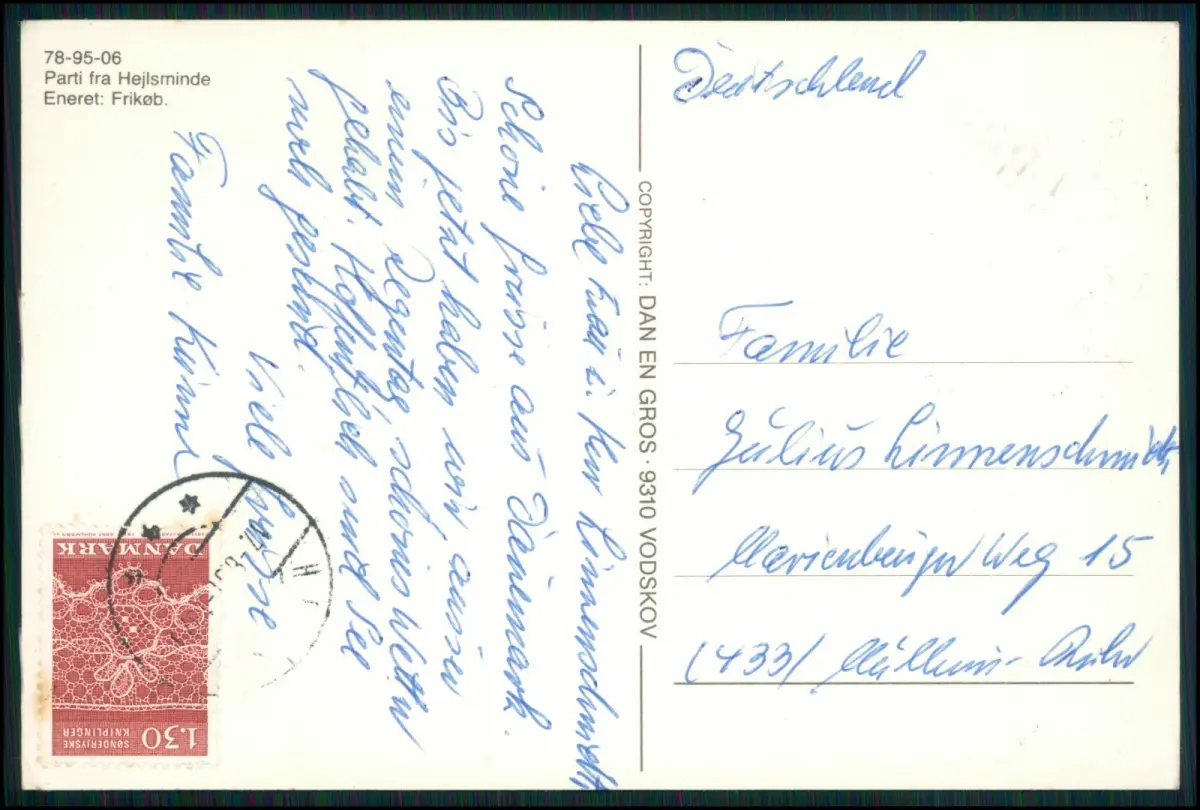 78-95-06
Parti fra Hejlsminde
Eneret: Frikøb.
Liebe Frau u. Herr Linnenschmidt
Schöne Grüsse aus Dänemark.
Bis jetzt haben wir, ausser
einem Regentag schönes Wetter
gehabt. Hoffentlich sind Sie
noch gesund.
Viele Grüsse
Familie
COPYRIGHT: DAN EN GROS · 9310 VODSKOV
Deutschland
Familie
Julius Linnenschmidt,
Marienburger Weg 15
(433) Mülheim-Ruhr
DANMARK
SØNDERJYSKE
KNIPLINGER
1.30